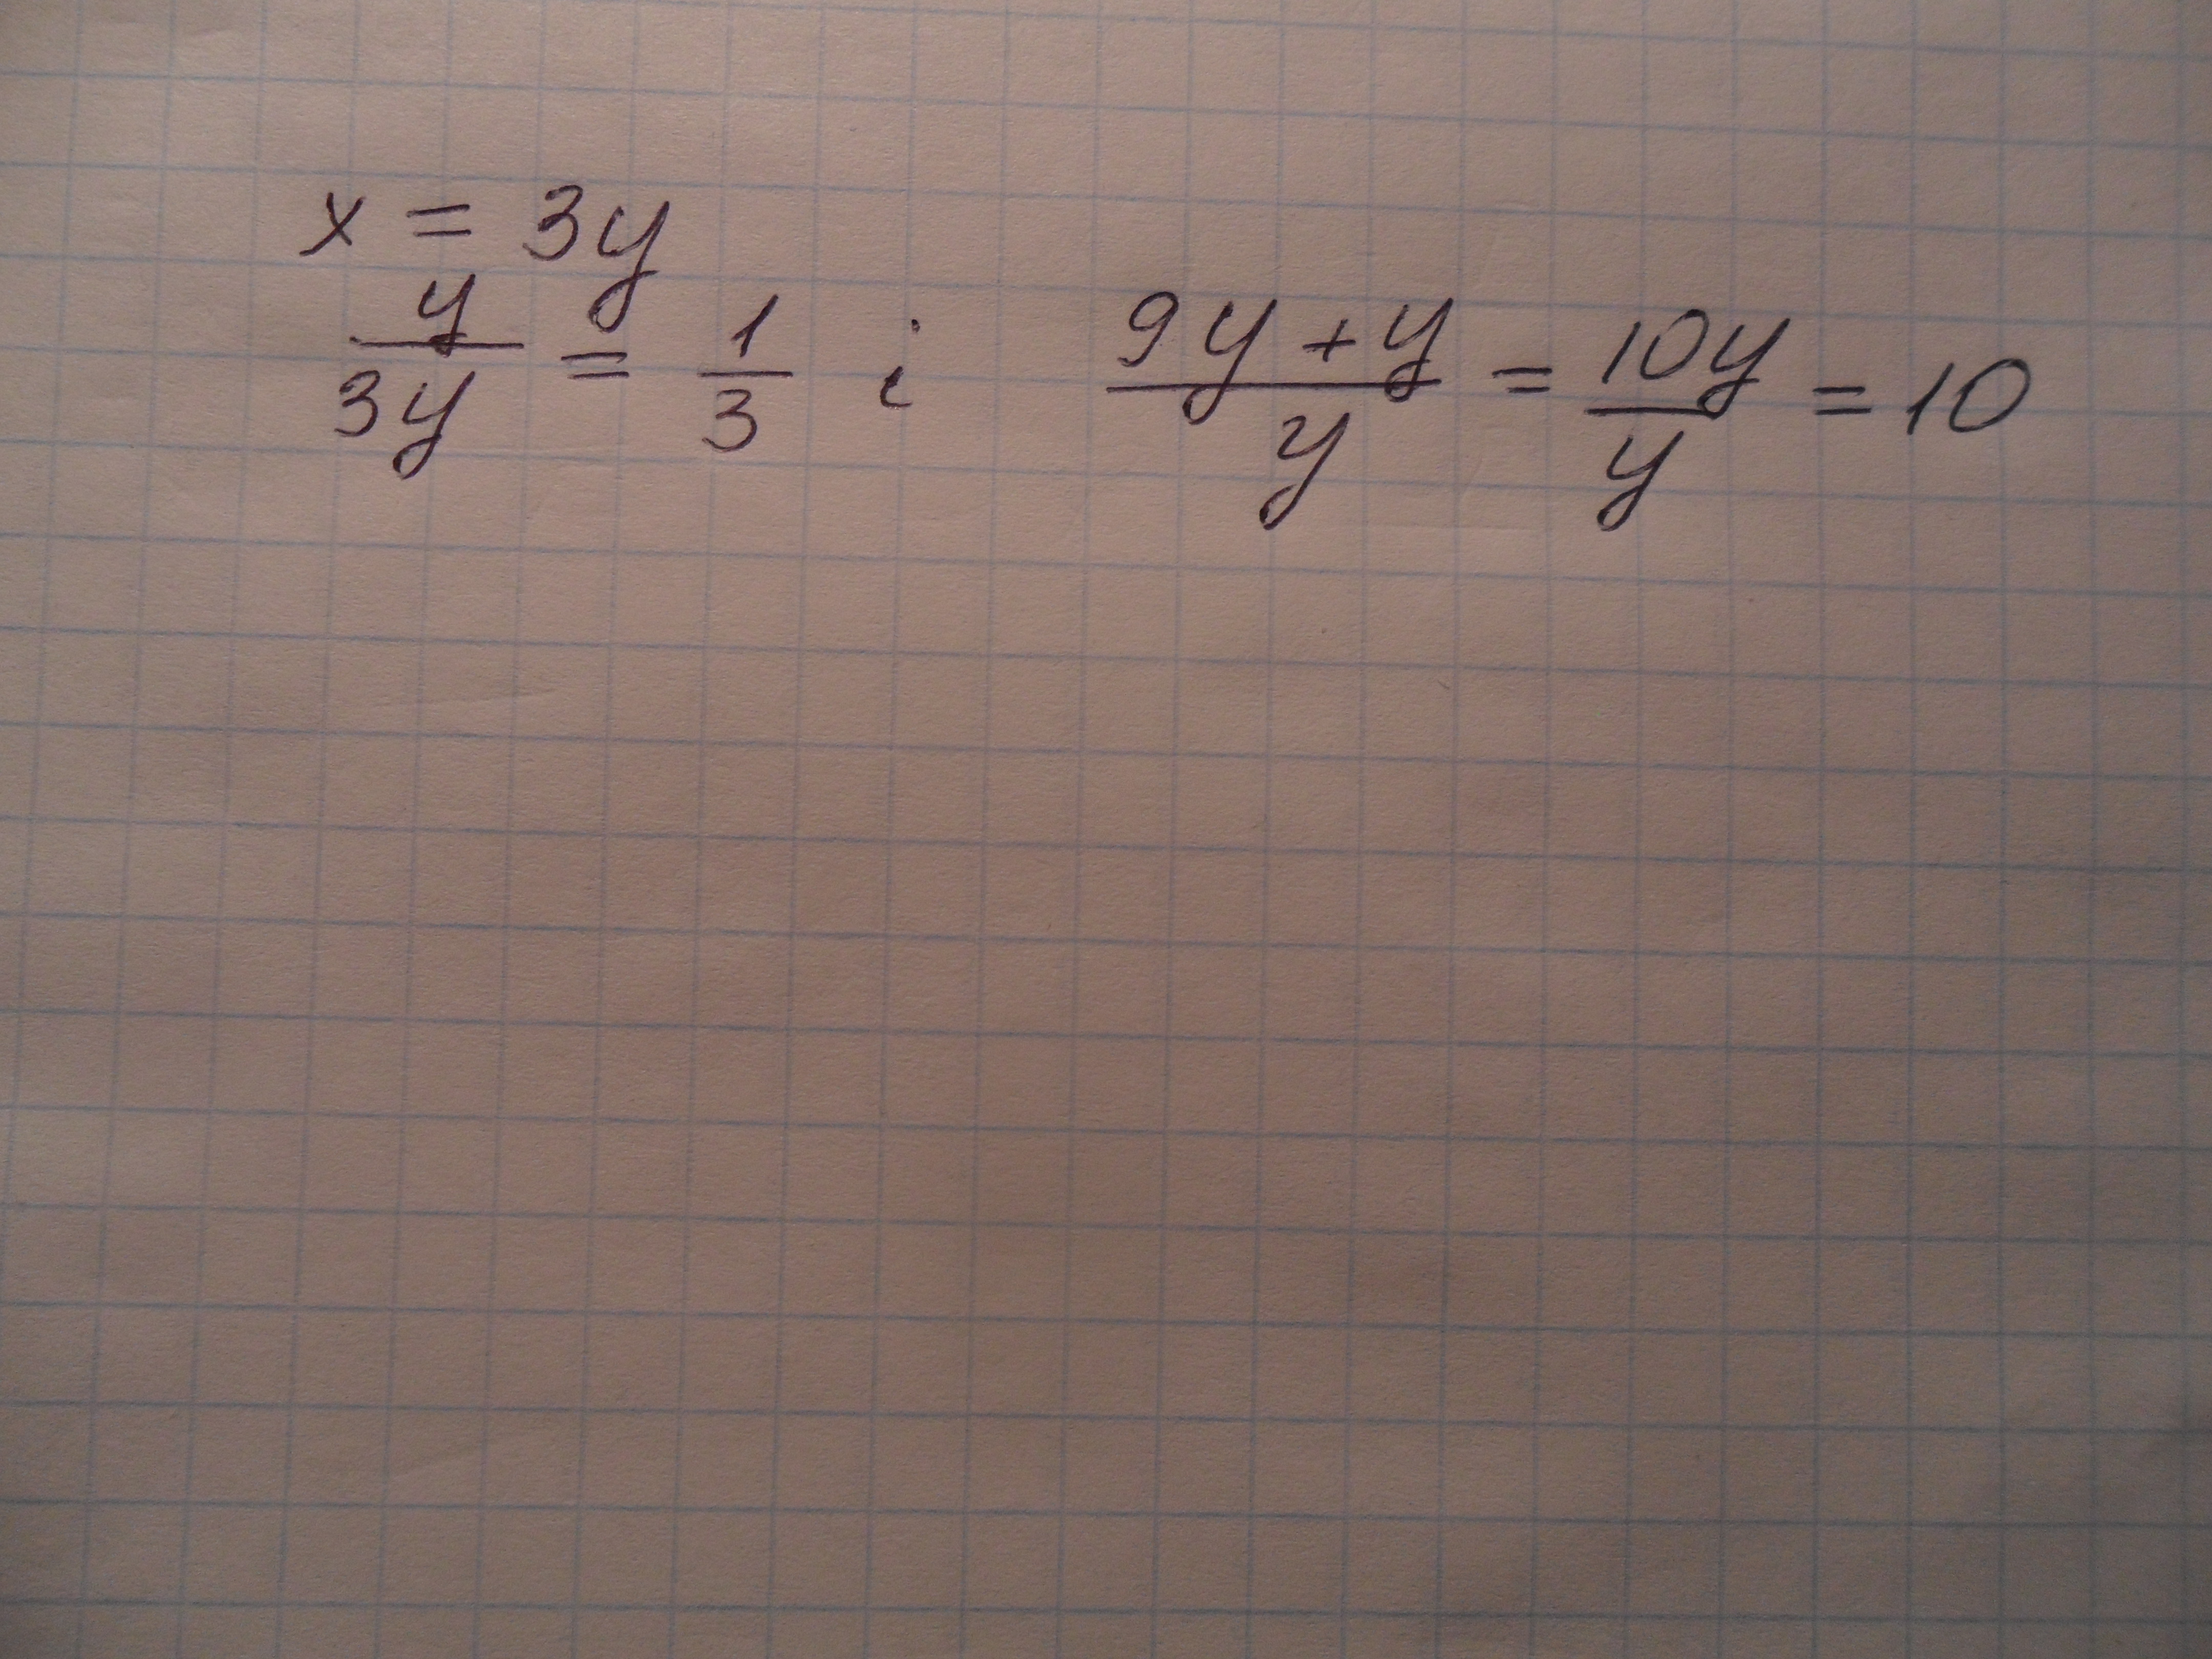 x = 3y
y/3y = 1/3 i (9y + y)/y = 10y/y = 10